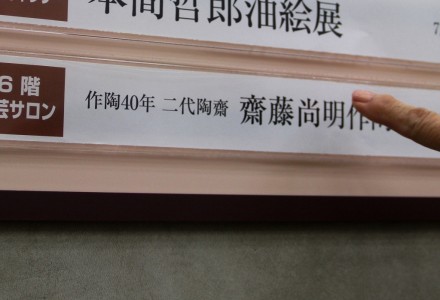 本間哲郎油絵展 7
6階
芸サロン
作陶40年 二代陶齋 齋藤尚明作